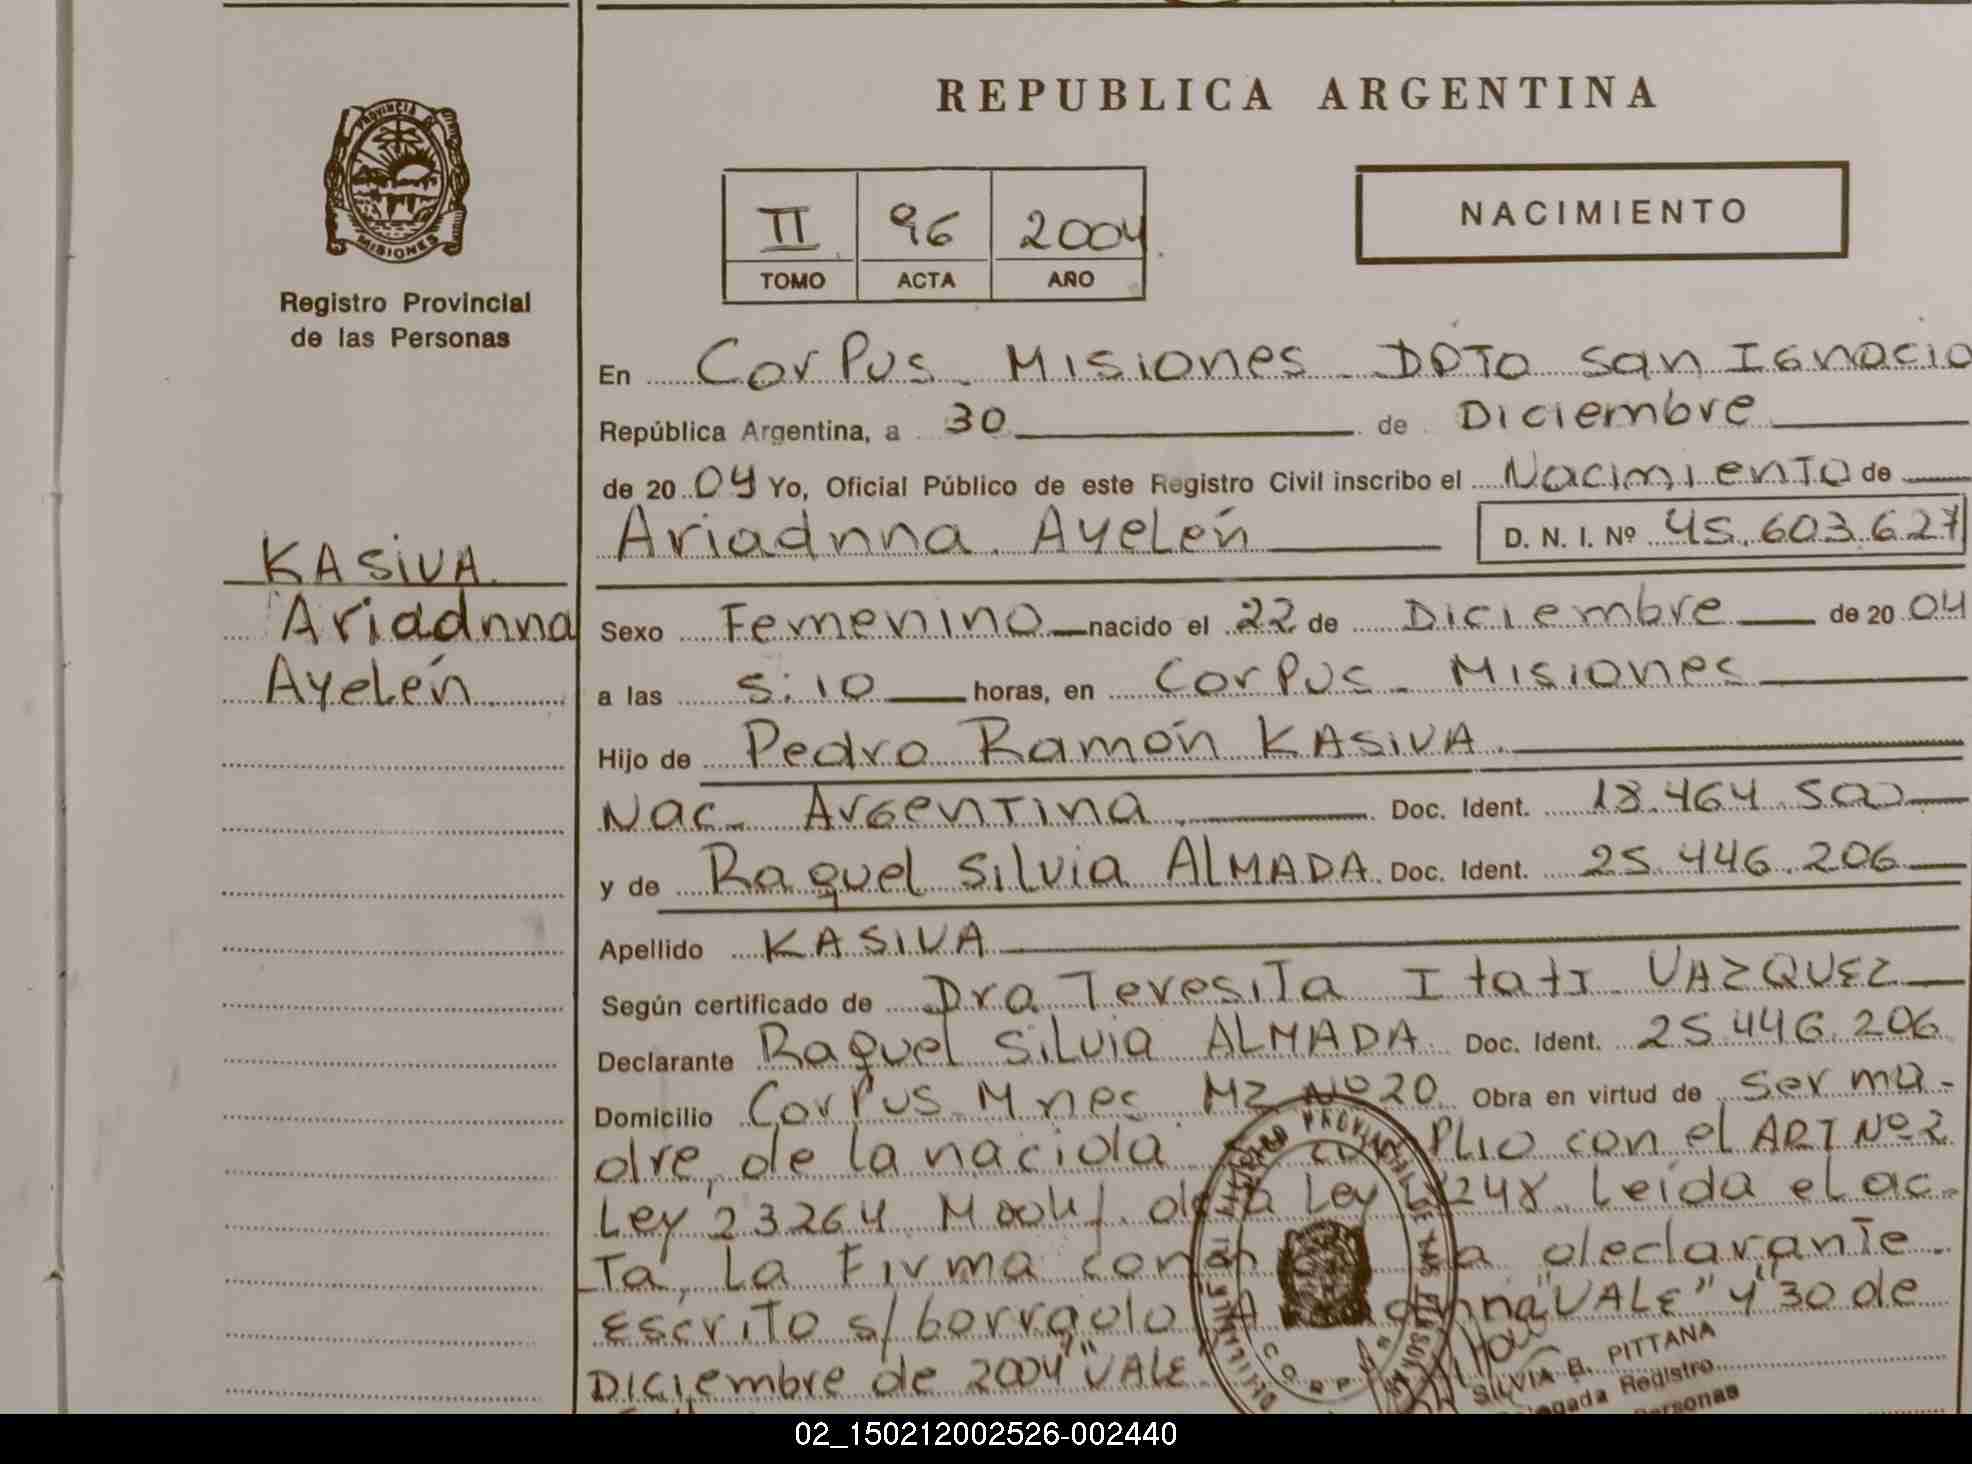 REPUBLICA ARGENTINA
PROVINCIA DE
MISIONES
Registro Provincial
de las Personas
II 96 2004
TOMO ACTA AÑO
NACIMIENTO
KASIVA
Ariadnna
Ayelén
En Corpus - Misiones - DPTO San Ignacio
República Argentina, a 30 de Diciembre
de 2004 Yo, Oficial Público de este Registro Civil inscribo el Nacimiento de
Ariadnna Ayelén D. N. I. Nº 45.603.627
Sexo Femenino nacido el 22 de Diciembre de 2004
a las 5:10 horas, en Corpus - Misiones
Hijo de Pedro Ramón KASIVA
Nac. Argentina Doc. Ident. 18.464.500
y de Raquel Silvia ALMADA Doc. Ident. 25.446.206
Apellido KASIVA
Según certificado de Dra Teresita Itati VAZQUEZ
Declarante Raquel Silvia ALMADA Doc. Ident. 25.446.206
Domicilio Corpus Mnes MZ Nº 20 Obra en virtud de ser ma-
dre, de la nacida con el ART Nº 2
Ley 23264 de la Ley Leida el ac-
ta, la Firma declarante.
Escrito s/borrado "VALE" y "30 de
Diciembre de 2004" "VALE"
SILVIA B. PITTANA
Registro
Personas
02_150212002526-002440